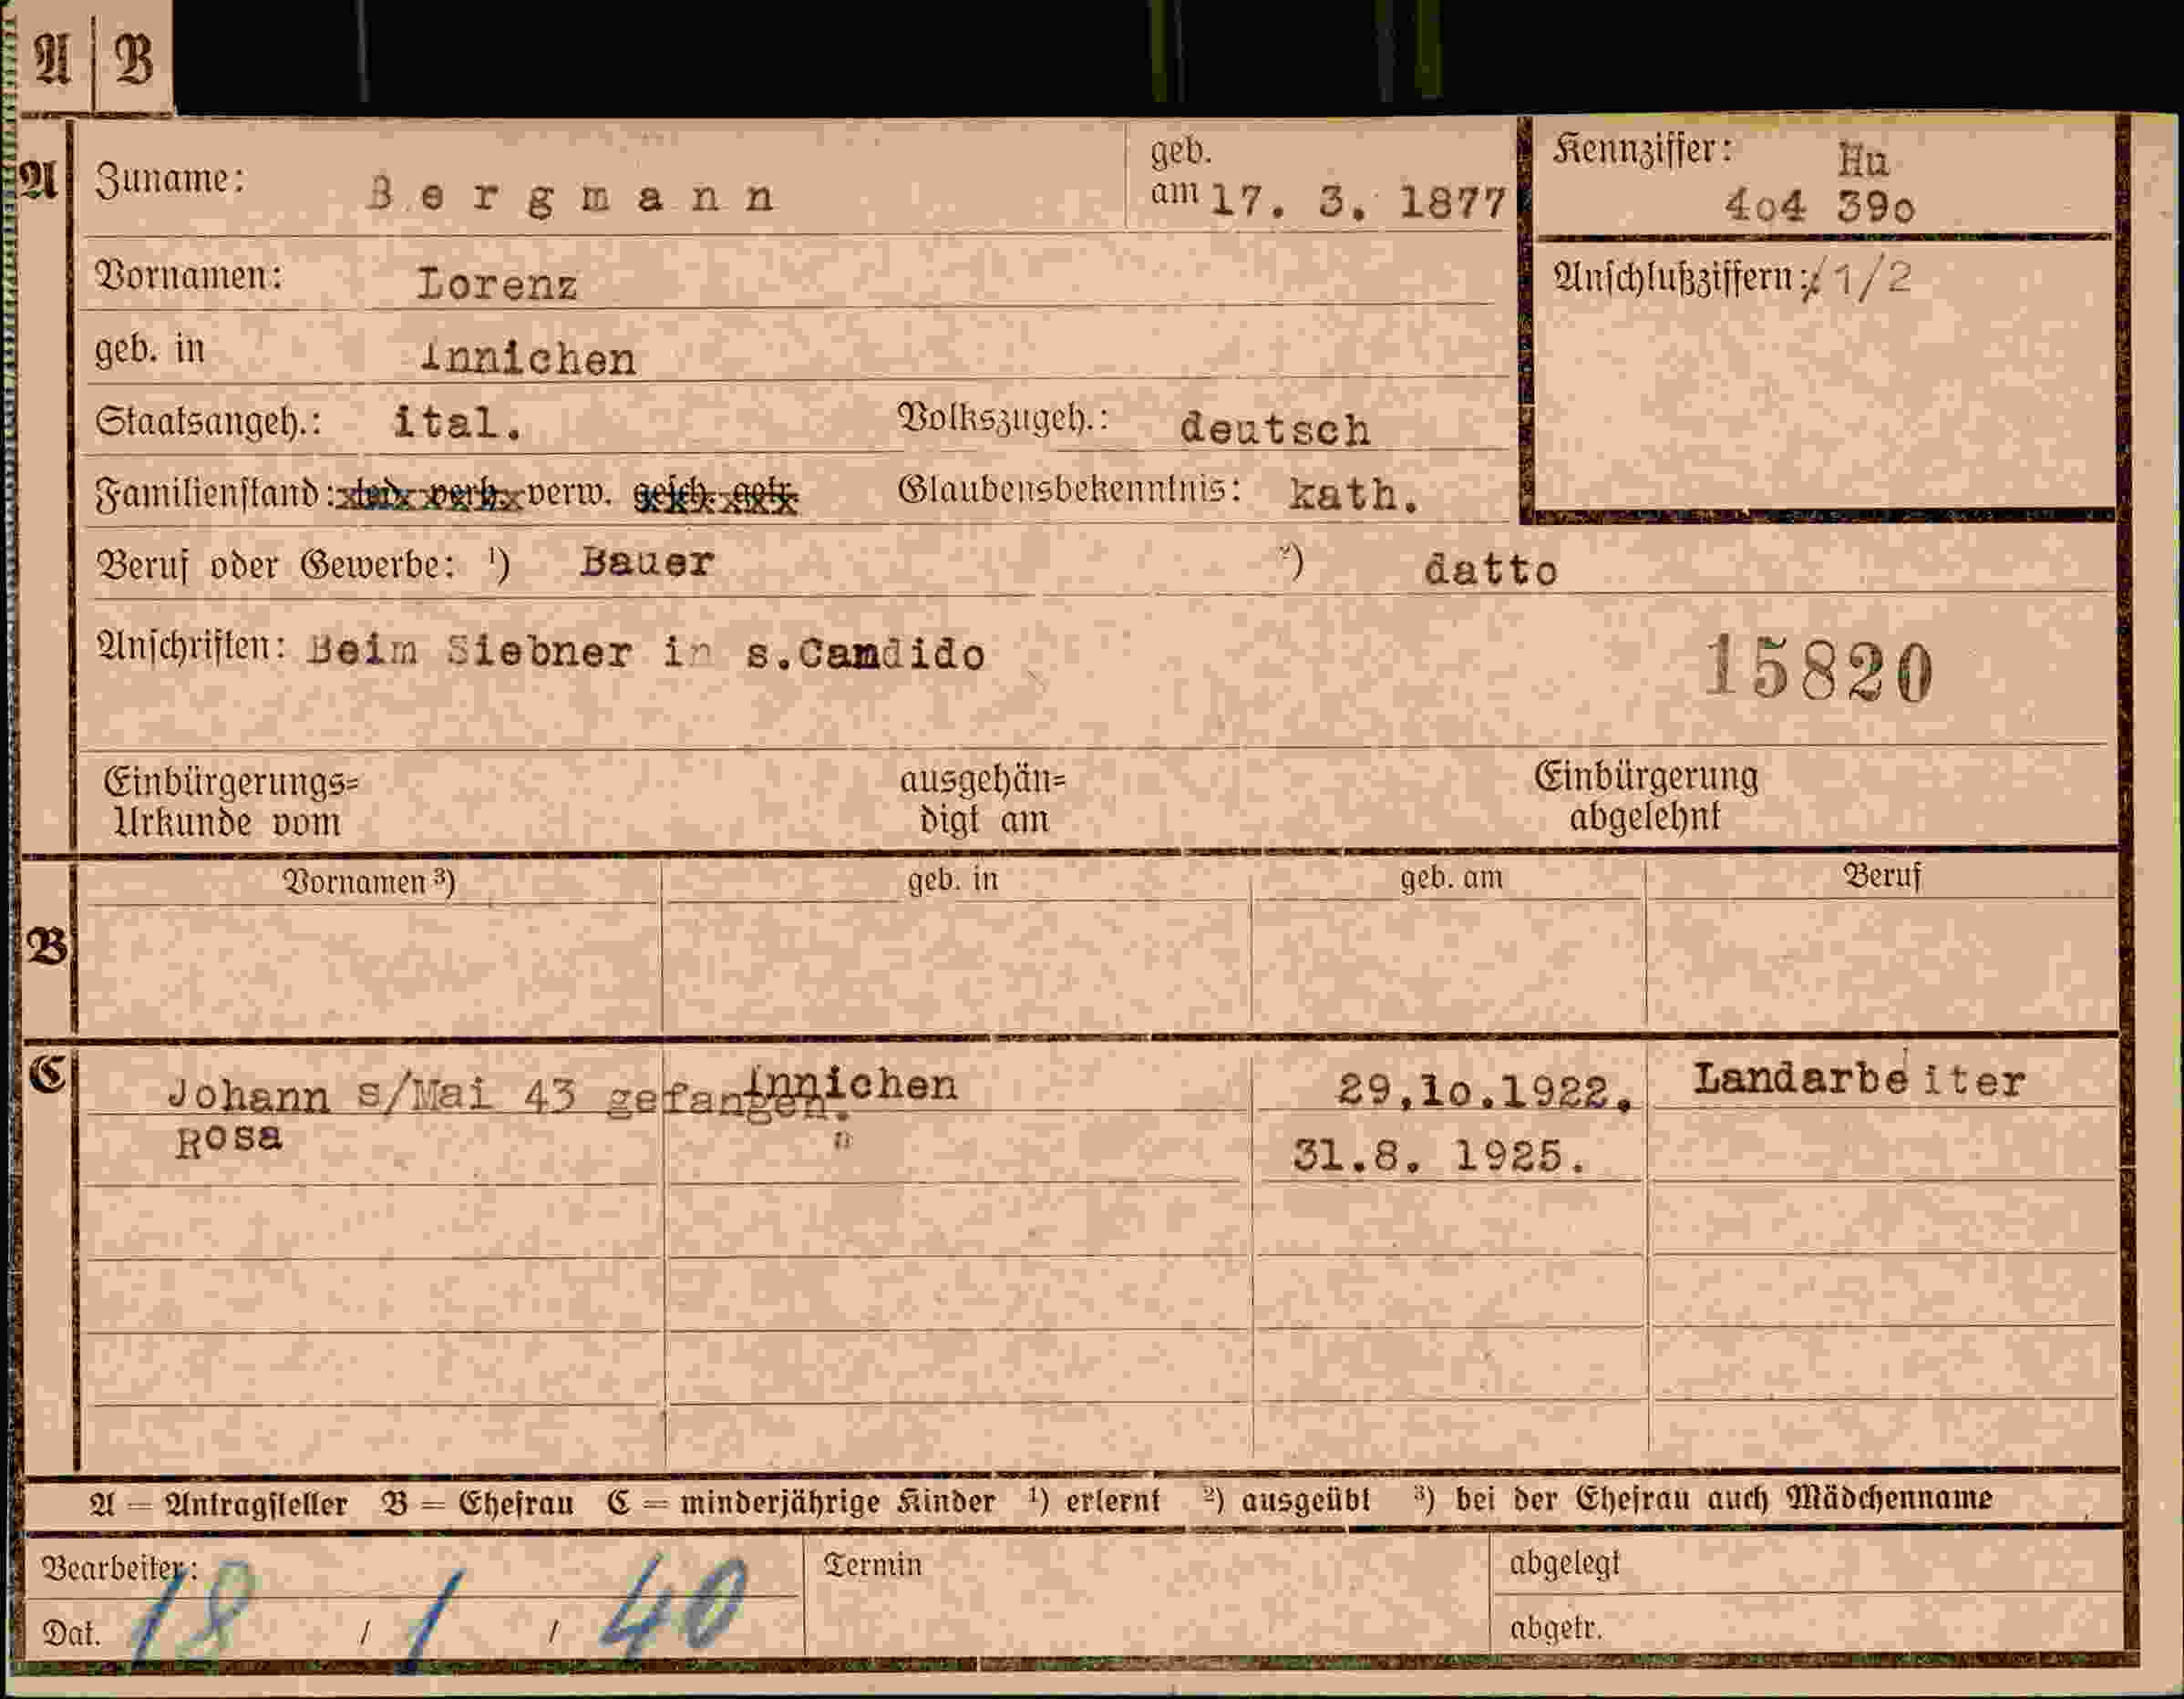 A | B
A Zuname: Bergmann geb. am 17. 3. 1877 Kennziffer: Hu 4o4 39o
Vornamen: Lorenz Anschlußziffern: 1/2
geb. in Innichen
Staatsangeh.: ital. Volkszugeh.: deutsch
Familienstand: led. verh. verw. gesch. getr. Glaubensbekenntnis: kath.
Beruf oder Gewerbe: ¹) Bauer ²) datto
Anschriften: Beim Siebner in s.Candido 15820
Einbürgerungs= ausgehän= Einbürgerung
Urkunde vom digt am abgelehnt
Vornamen ³) geb. in geb. am Beruf
B
C Johann s/Mai 43 gefangen. Innichen 29.1o.1922. Landarbeiter
Rosa " 31.8. 1925.
A = Antragsteller B = Ehefrau C = minderjährige Kinder ¹) erlernt ²) ausgeübt ³) bei der Ehefrau auch Mädchenname
Bearbeiter: Termin abgelegt
Dat. 18 / 1 / 40 abgetr.